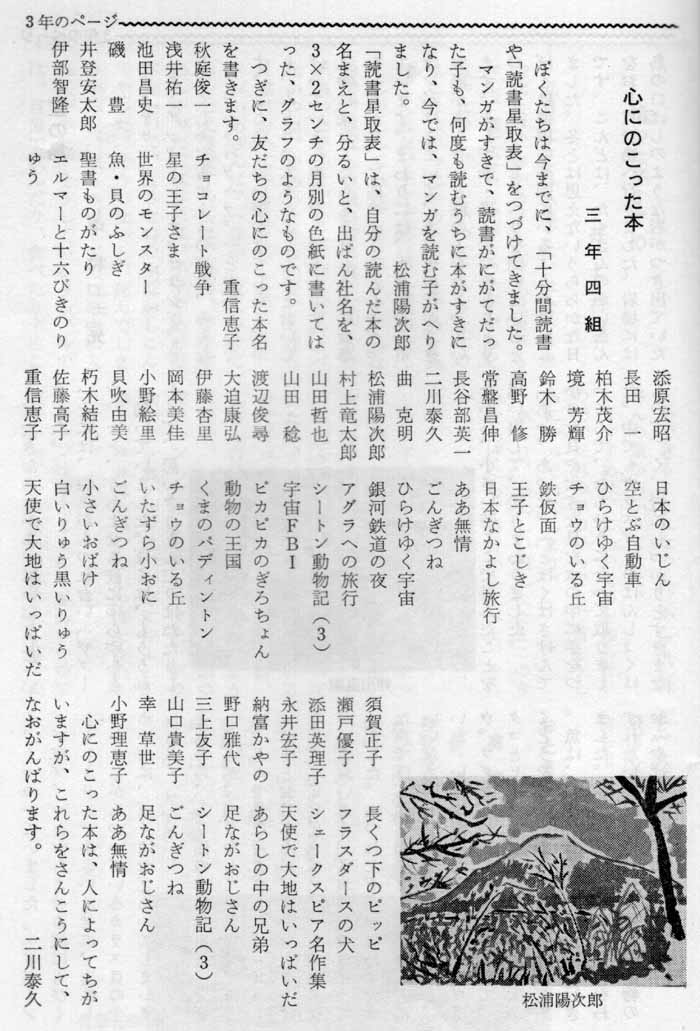 3年のページ
心にのこった本
三年四組
ぼくたちは今までに、「十分間読書
や「読書星取表」をつづけてきました。
マンガがすきで、読書がにがてだっ
た子も、何度も読むうちに本がすきに
なり、今では、マンガを読む子がへり
ました。　松浦陽次郎
「読書星取表」は、自分の読んだ本の
名まえと、分るいと、出ぱん社名を、
3×2センチの月別の色紙に書いては
った、グラフのようなものです。
つぎに、友だちの心にのこった本名
を書きます。　重信恵子
秋庭俊一　チョコレート戦争
浅井祐一　星の王子さま
池田昌史　世界のモンスター
磯　豊　魚・貝のふしぎ
井登安太郎　聖書ものがたり
伊部智隆　エルマーと十六ぴきのり
ゅう
添原宏昭　日本のいじん
長田　一　空とぶ自動車
柏木茂介　ひらけゆく宇宙
境　芳輝　チョウのいる丘
鈴木　勝　鉄仮面
高野　修　王子とこじき
常盤昌伸　日本なかよし旅行
長谷部英一　ああ無情
二川泰久　ごんぎつね
曲　克明　ひらけゆく宇宙
松浦陽次郎　銀河鉄道の夜
村上竜太郎　アグラへの旅行
山田哲也　シートン動物記(3)
山田　稔　宇宙FBI
渡辺俊尋　ピカピカのぎろちょん
大迫康弘　動物の王国
伊藤杏里　くまのパディントン
岡本美佳　チョウのいる丘
小野絵里　いたずら小おに
貝吹由美　ごんぎつね
朽木結花　小さいおばけ
佐藤高子　白いりゅう黒いりゅう
重信恵子　天使で大地はいっぱいだ
須賀正子　長くつ下のピッピ
瀬戸優子　フラスダースの犬
添田英理子　シェークスピア名作集
永井宏子　天使で大地はいっぱいだ
納富かやの　あらしの中の兄弟
野口雅代　足ながおじさん
三上友子　シートン動物記(3)
山口貴美子　ごんぎつね
幸　草世　足ながおじさん
小野理恵子　ああ無情
心にのこった本は、人によってちが
いますが、これらをさんこうにして、
なおがんばります。　二川泰久
松浦陽次郎